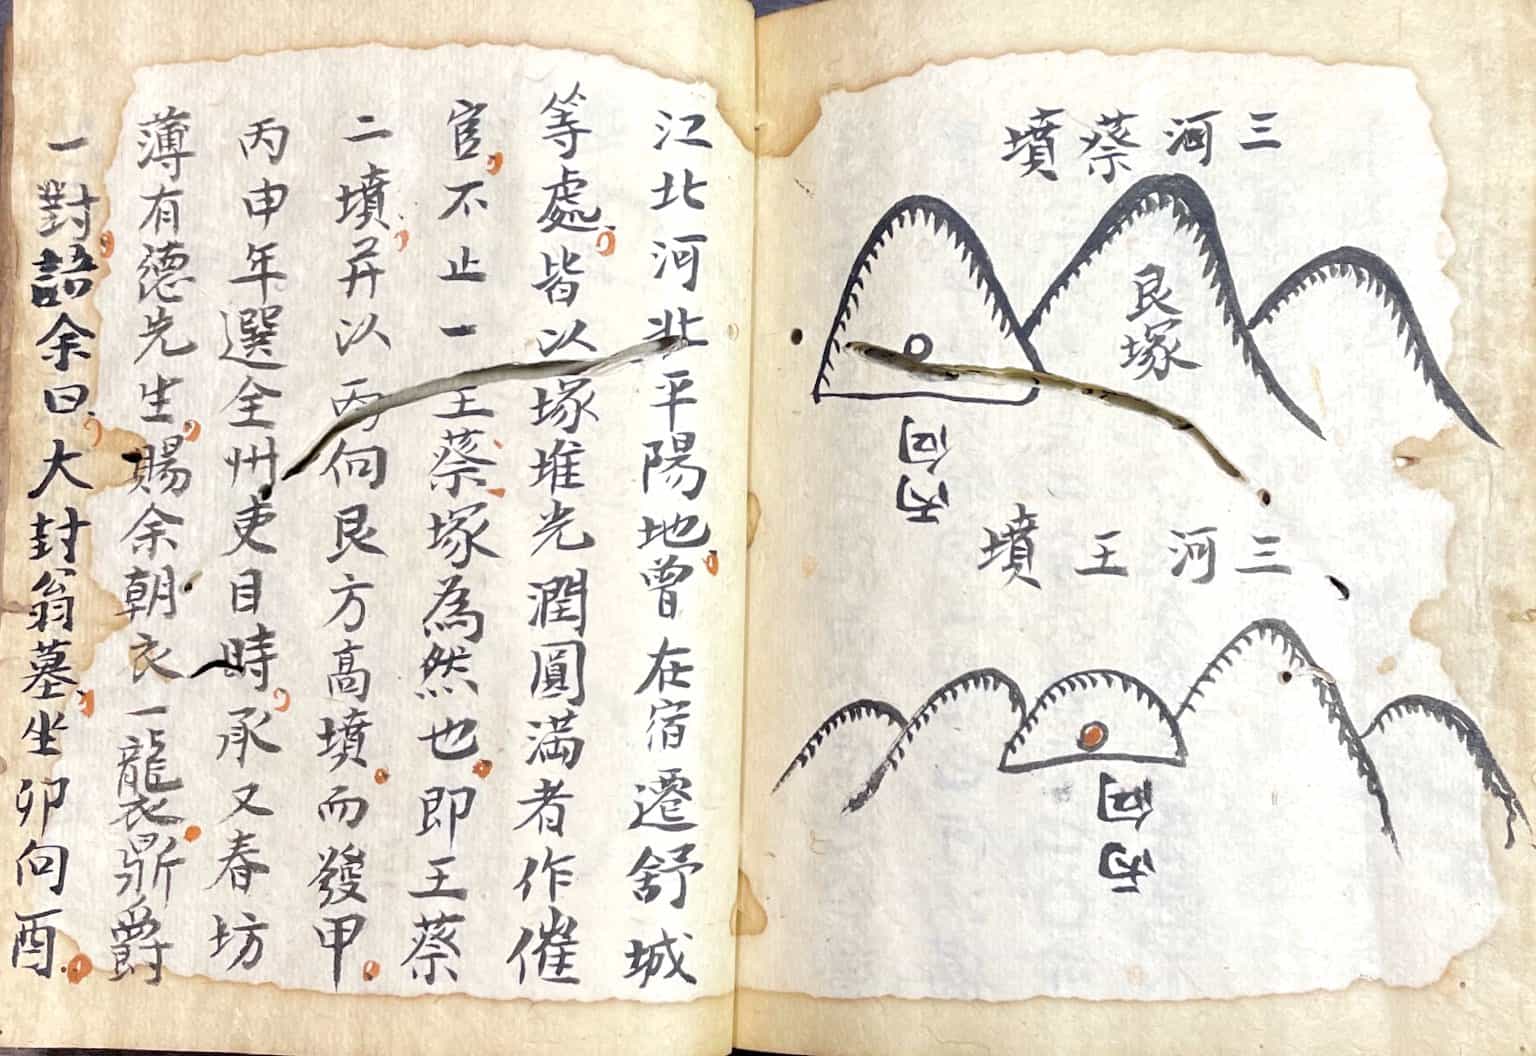 三河蔡墳
艮塚
丙向
三河王墳
丙向
江北河北平陽地曾在宿遷舒城
等處皆以塚堆光潤圓滿者作催
官不止一王蔡塚為然也即王蔡
二墳并以丙向艮方高墳而發甲
丙申年選全州吏目時承又春坊
薄有德先生賜余朝衣一襲鼎爵
一對語余曰大封翁墓坐卯向酉